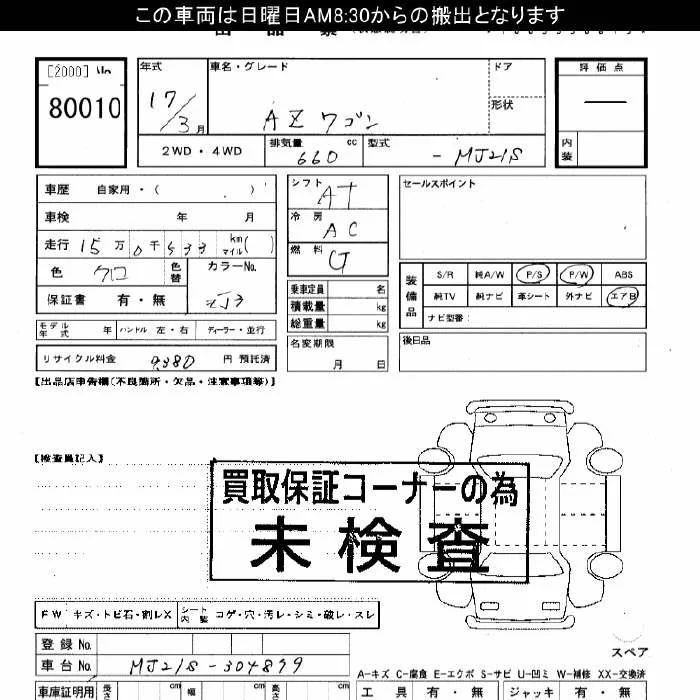 この車両は日曜日AM8:30からの搬出となります
[2000] No
年式 車名・グレード ドア 評価点
80010 17/3月 AZワゴン 形状 —
2WD・4WD 排気量 660 cc 型式 - MJ21S 内装
車歴 自家用・( ) シフト AT セールスポイント
車検 年 月 冷房 AC
走行 15万0千533 km マイル( ) 燃料 G
色 クロ 色替 カラーNo. ZJ3 乗車定員 名 装備品 S/R 純A/W P/S P/W ABS
保証書 有・無 積載量 kg 純TV 純ナビ 革シート 外ナビ エアB
総重量 kg ナビ型番:
モデル年式 年 ハンドル 左・右 ディーラー・並行 名変期限 月 日 後日品
リサイクル料金 9,380 円 預託済
【出品店申告欄(不良箇所・欠品・注意事項等)】
【検査員記入】
買取保証コーナーの為
未検査
FW キズ・トビ石・割レX シート内装 コゲ・穴・汚レ・シミ・破レ・スレ
登録No.
スペア
車台No. MJ21S-304899
A-キズ C-腐食 E-エクボ S-サビ U-凹ミ W-補修 XX-交換済
車庫証明用 長さ cm 幅 cm 高さ cm 工具 有・無 ジャッキ 有・無